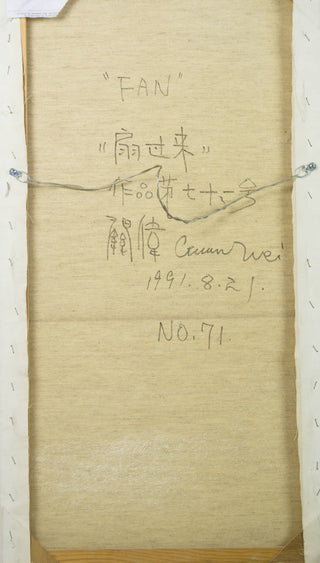 "FAN"
"扇过来"
作品第七十一号
關偉 Guan Wei
1991.8.21.
NO.71.